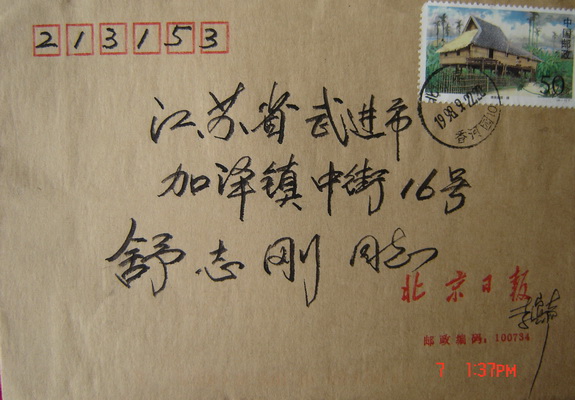 213153
中国邮政
50
1998.9.22.20
香河园
江苏省武进市
加泽镇中街16号
舒志刚 同志
北京日报
邮政编码：100734
7 1:37PM